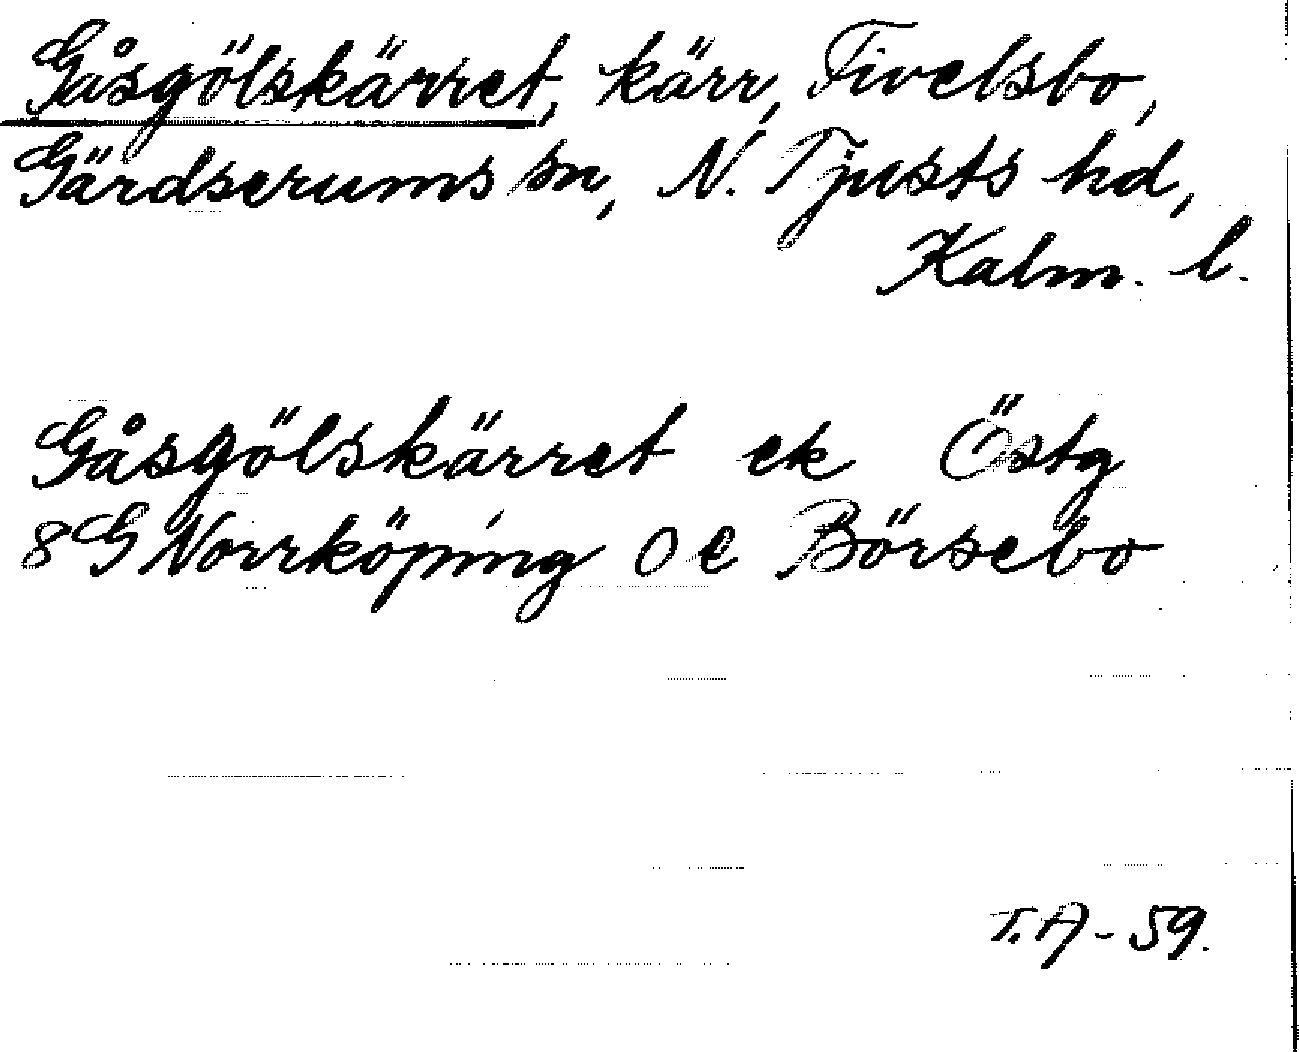 Gåsgölskärret, kärr, Fivelsbo,
Gärdserums sn, N. Tjusts hd,
Kalm. l.
Gåsgölskärret ek Östg
8G Norrköping 0e Börsebo
T.A-59.